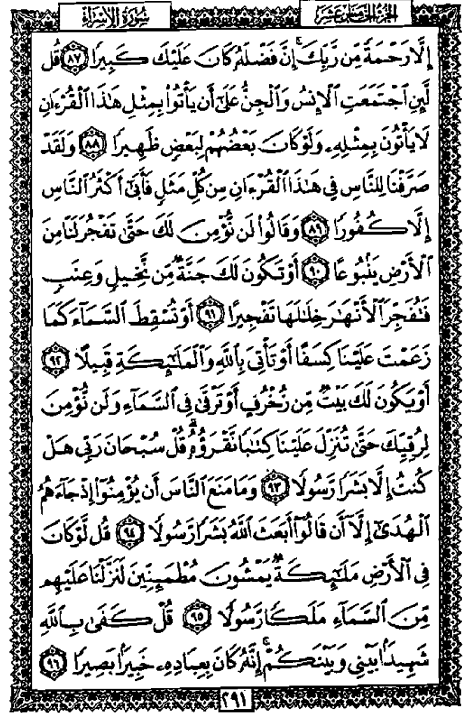 الجزء الخامس عشر
سورة الإسراء
إِلَّا رَحْمَةً مِّن رَّبِّكَ ۚ إِنَّ فَضْلَهُ كَانَ عَلَيْكَ كَبِيرًا ﴿٨٧﴾ قُل
لَّئِنِ ٱجْتَمَعَتِ ٱلْإِنسُ وَٱلْجِنُّ عَلَىٰٓ أَن يَأْتُوا۟ بِمِثْلِ هَٰذَا ٱلْقُرْءَانِ
لَا يَأْتُونَ بِمِثْلِهِۦ وَلَوْ كَانَ بَعْضُهُمْ لِبَعْضٍ ظَهِيرًا ﴿٨٨﴾ وَلَقَدْ
صَرَّفْنَا لِلنَّاسِ فِى هَٰذَا ٱلْقُرْءَانِ مِن كُلِّ مَثَلٍ فَأَبَىٰٓ أَكْثَرُ ٱلنَّاسِ
إِلَّا كُفُورًا ﴿٨٩﴾ وَقَالُوا۟ لَن نُّؤْمِنَ لَكَ حَتَّىٰ تَفْجُرَ لَنَا مِنَ
ٱلْأَرْضِ يَنۢبُوعًا ﴿٩٠﴾ أَوْ تَكُونَ لَكَ جَنَّةٌ مِّن نَّخِيلٍ وَعِنَبٍ
فَتُفَجِّرَ ٱلْأَنْهَٰرَ خِلَٰلَهَا تَفْجِيرًا ﴿٩١﴾ أَوْ تُسْقِطَ ٱلسَّمَآءَ كَمَا
زَعَمْتَ عَلَيْنَا كِسَفًا أَوْ تَأْتِىَ بِٱللَّهِ وَٱلْمَلَٰٓئِكَةِ قَبِيلًا ﴿٩٢﴾
أَوْ يَكُونَ لَكَ بَيْتٌ مِّن زُخْرُفٍ أَوْ تَرْقَىٰ فِى ٱلسَّمَآءِ وَلَن نُّؤْمِنَ
لِرُقِيِّكَ حَتَّىٰ تُنَزِّلَ عَلَيْنَا كِتَٰبًا نَّقْرَؤُهُۥ ۗ قُلْ سُبْحَانَ رَبِّى هَلْ
كُنتُ إِلَّا بَشَرًا رَّسُولًا ﴿٩٣﴾ وَمَا مَنَعَ ٱلنَّاسَ أَن يُؤْمِنُوٓا۟ إِذْ جَآءَهُمُ
ٱلْهُدَىٰٓ إِلَّآ أَن قَالُوٓا۟ أَبَعَثَ ٱللَّهُ بَشَرًا رَّسُولًا ﴿٩٤﴾ قُل لَّوْ كَانَ
فِى ٱلْأَرْضِ مَلَٰٓئِكَةٌ يَمْشُونَ مُطْمَئِنِّينَ لَنَزَّلْنَا عَلَيْهِم
مِّنَ ٱلسَّمَآءِ مَلَكًا رَّسُولًا ﴿٩٥﴾ قُلْ كَفَىٰ بِٱللَّهِ
شَهِيدًۢا بَيْنِى وَبَيْنَكُمْ ۚ إِنَّهُۥ كَانَ بِعِبَادِهِۦ خَبِيرًۢا بَصِيرًا ﴿٩٦﴾
٢٩١